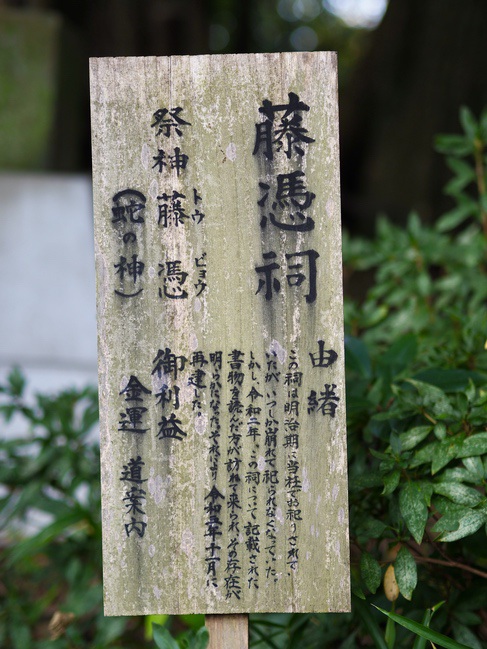 藤憑祠
由緒
この祠は明治期に当社でお祀りされて
いたが、いつしか崩れて祀られなくなっていた。
しかし、令和二年、この祠について記載された
書物を読んだ方が訪れて来られ、その存在が
明らかになった。それより、令和五年十一月に
再建した。
祭神 藤憑
トウ ビョウ
(蛇の神)
御利益
金運 道案内